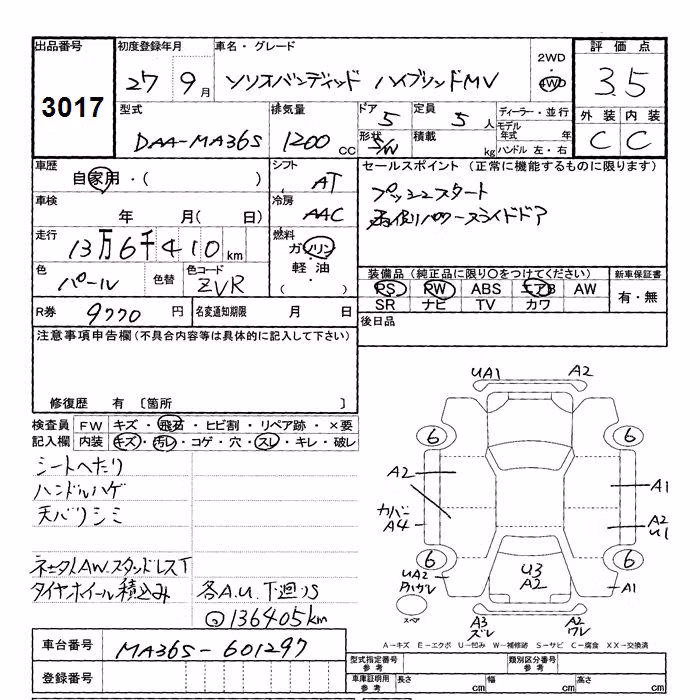 出品番号
3017
初度登録年月
27 9月
車名・グレード
ソリオバンディッド ハイブリッドMV
2WD
・
4WD
評価点
3.5
外装 内装
C C
型式
DAA-MA36S
排気量
1200 cc
ドア
5
定員
5人
形状
S/W
積載
kg
ディーラー・並行
モデル年式 年
ハンドル 左・右
車歴
自家用・( )
シフト
AT
車検
年 月( 日)
冷房
AAC
走行
13万6千410km
燃料
ガソリン
・
軽油
( )
色
パール
色替
色コード
ZVR
R券 9770円
名変通知期限 月 日
セールスポイント (正常に機能するものに限ります)
プッシュスタート
両側パワースライドドア
装備品(純正品に限り○をつけてください)
新車保証書
PS PW ABS エアB AW
SR ナビ TV カワ
有・無
後日品
注意事項申告欄(不具合内容等は具体的に記入して下さい)
修復歴 有 〔箇所 〕
検査員記入欄
FW キズ・飛石・ヒビ割・リペア跡・×要
内装 キズ・汚レ・コゲ・穴・スレ・キレ・破レ
シートヘたり
ハンドルハゲ
天バリシミ
タイヤホイール積込み
各A.U.下廻りS
136405km
UA1 A2
6 6
A2 A1
カバーA4
A2 U1
6 6
UA2
U3
A2
A1
スペア
A3 ズレ
A2 ワレ
A-キズ E-エクボ U-凹み W-補修跡 S-サビ C-腐食 XX-交換済
車台番号
MA36S-601297
登録番号
型式指定番号 参考
類別区分番号 参考
車庫証明用 参考
長さ cm
幅 cm
高さ cm